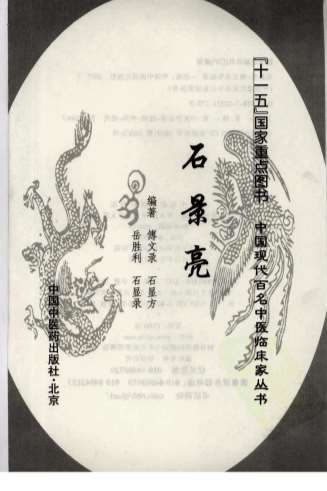 『十一五』国家重点图书　中国现代百名中医临床家丛书
石景亮
编著　傅文录　石显方
岳胜利　石显录
中国中医药出版社·北京